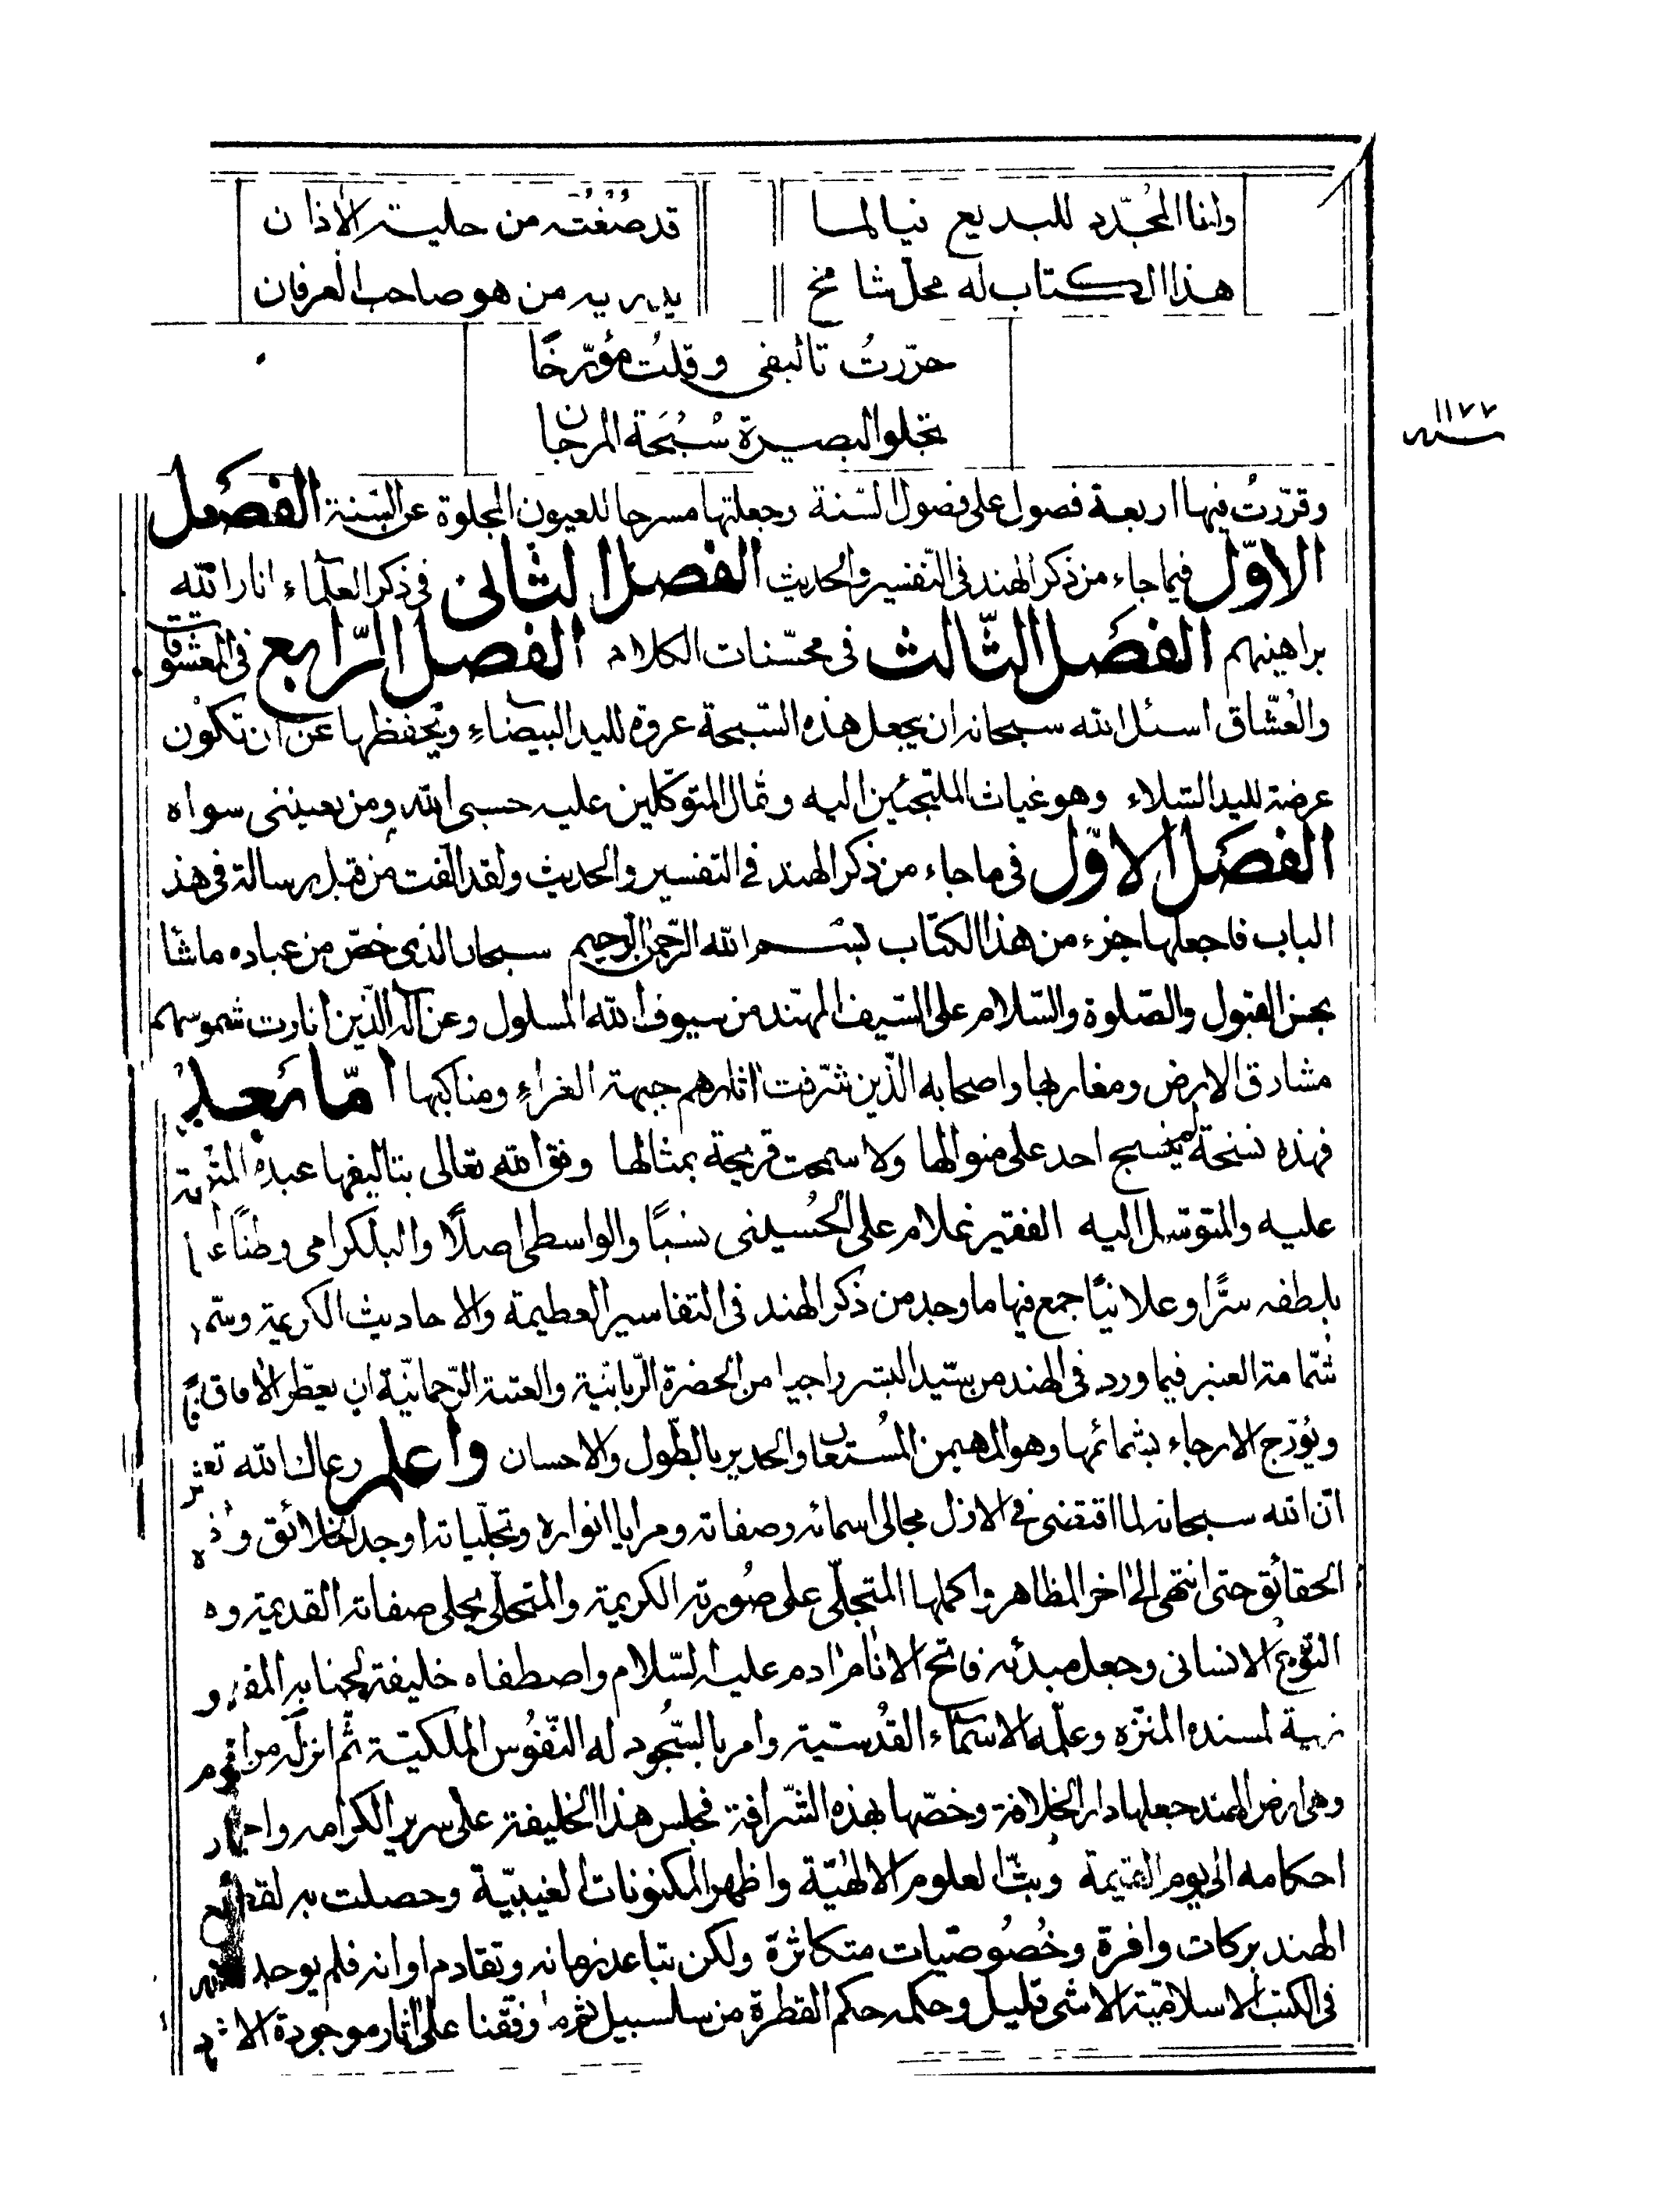 وانا المجدّد للبديع فيا لما قد صُغْتُه من حلية الأذان
هذا الكتاب له محلّ شامخ يدريه من هو صاحب العرفان
حرّرتُ تأليفى وقلتُ مؤرّخًا
تجلو البصيرة سُبْحَة المرجان
١١٧٧ سنه
وقرّرتُ فيها اربعة فصول على فصول السّنة وجعلتها مسرحا للعيون المجلوة عن السّنة الفصل
الاوّل فيما جاء من ذكر الهند فى التفسير والحديث الفصل الثانى فى ذكر العلماء انار الله
براهينهم الفصل الثّالث فى محسّنات الكلام الفصل الرّابع فى المعشوقات
والعُشّاق اسئل الله سبحانه ان يجعل هذه السّبحة عروة لليد البيضاء ويحفظها عن ان تكون
عرضة لليد الشلاء وهو غياث الملتجئين اليه وثمال المتوكّلين عليه حسبى الله ومن يعيننى سواه
الفصل الاوّل فى ما جاء من ذكر الهند فى التفسير والحديث ولقد الّفت من قبل رسالة فى هذ
الباب فاجعلها جزء من هذا الكتاب بسم الله الرّحمن الرّحيم سبحان الذى خصّ من عباده ماشا
بحسن القبول والصّلوة والسّلام على السّيف المهنّد من سيوف الله المسلول وعن اله الّذين انارت شموسهم
مشارق الارض ومغاربها واصحابه الّذين شرّفت اثارهم جبهة الغراء ومناكبها امّا بعد
فهذه نسخة لم ينسج احد على منوالها ولا سمحت قريحة بمثالها وفق الله تعالى بتاليفها عبده
عليه والمتوسّل اليه الفقير غلام على الحُسينى نسبًا والواسطى اصلًا والبلكرامى وطنًا
بلطفه سرًّا وعلانيًا جمع فيها ما وجد من ذكر الهند فى التفاسير العظيمة والاحاديث الكريمة
شمّامة العنبر فيما ورد فى الهند من سيّد البشر راجيا من الحضرة الرّبانيّة والعتبة الرّحمانيّة ان يعطّر الأفاق
ويؤرّج الارجاء بشمائمها وهو المهيمن المُستعان والجدير بالطّول والاحسان واعلم رعاك الله
انّ الله سبحانه لما اقتضى فى الازل مجالى اسمائه وصفاته ومرايا انواره وتجلّياته اوجد الخلائق
الحقائق حتى انتهى الى اخر المظاهر واكملها المتجلّى على صُورته الكريمة والمتحلّى بحلى صفاته القديمة
التقويم الانسانى وجعل مبدئه فاتح الانام ادم عليه السّلام واصطفاه خليفة لجنابه
لمسنده المنزّه وعلّمه الاسماء القُدسّية وامر بالسّجود له النّفُوس الملكيّة ثمّ انزله من
وهى ارض الهند جعلها دار الخلافة وخصّها بهذه الشّرافة فجلس هذا الخليفة على سرير الكرامه
احكامه الى يوم القيمة وبثّ العلوم الالهيّة واظهر المكنونات الغيبيّة وحصلت به
الهند بركات وافرة وخُصُوصّيات متكاثرة ولكن تباعد زمانه وتقادم اوانه فلم يوجد
فى الكتب الاسلاميّة الا شئ قليل وحكمه حكم القطرة من سلسبيل وفّقنا على اثار موجودة